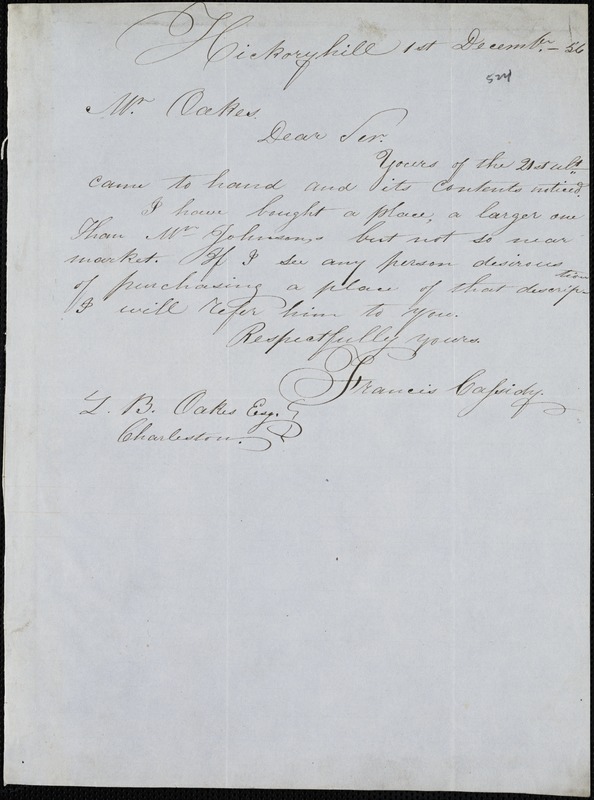 Hickoryhill 1st Decembr.- 56
524
Mr. Oakes.
Dear Ser.
Yours of the 21st ult
came to hand and its contents noticed.
I have bought a place, a larger one
Than Mr Johnsons but not so near
market. If I see any person desirous
of purchasing a place of that description
I will refer him to you.
Respectfully yours.
Francis Cassidy.
Z. B. Oakes Esq.
Charleston.